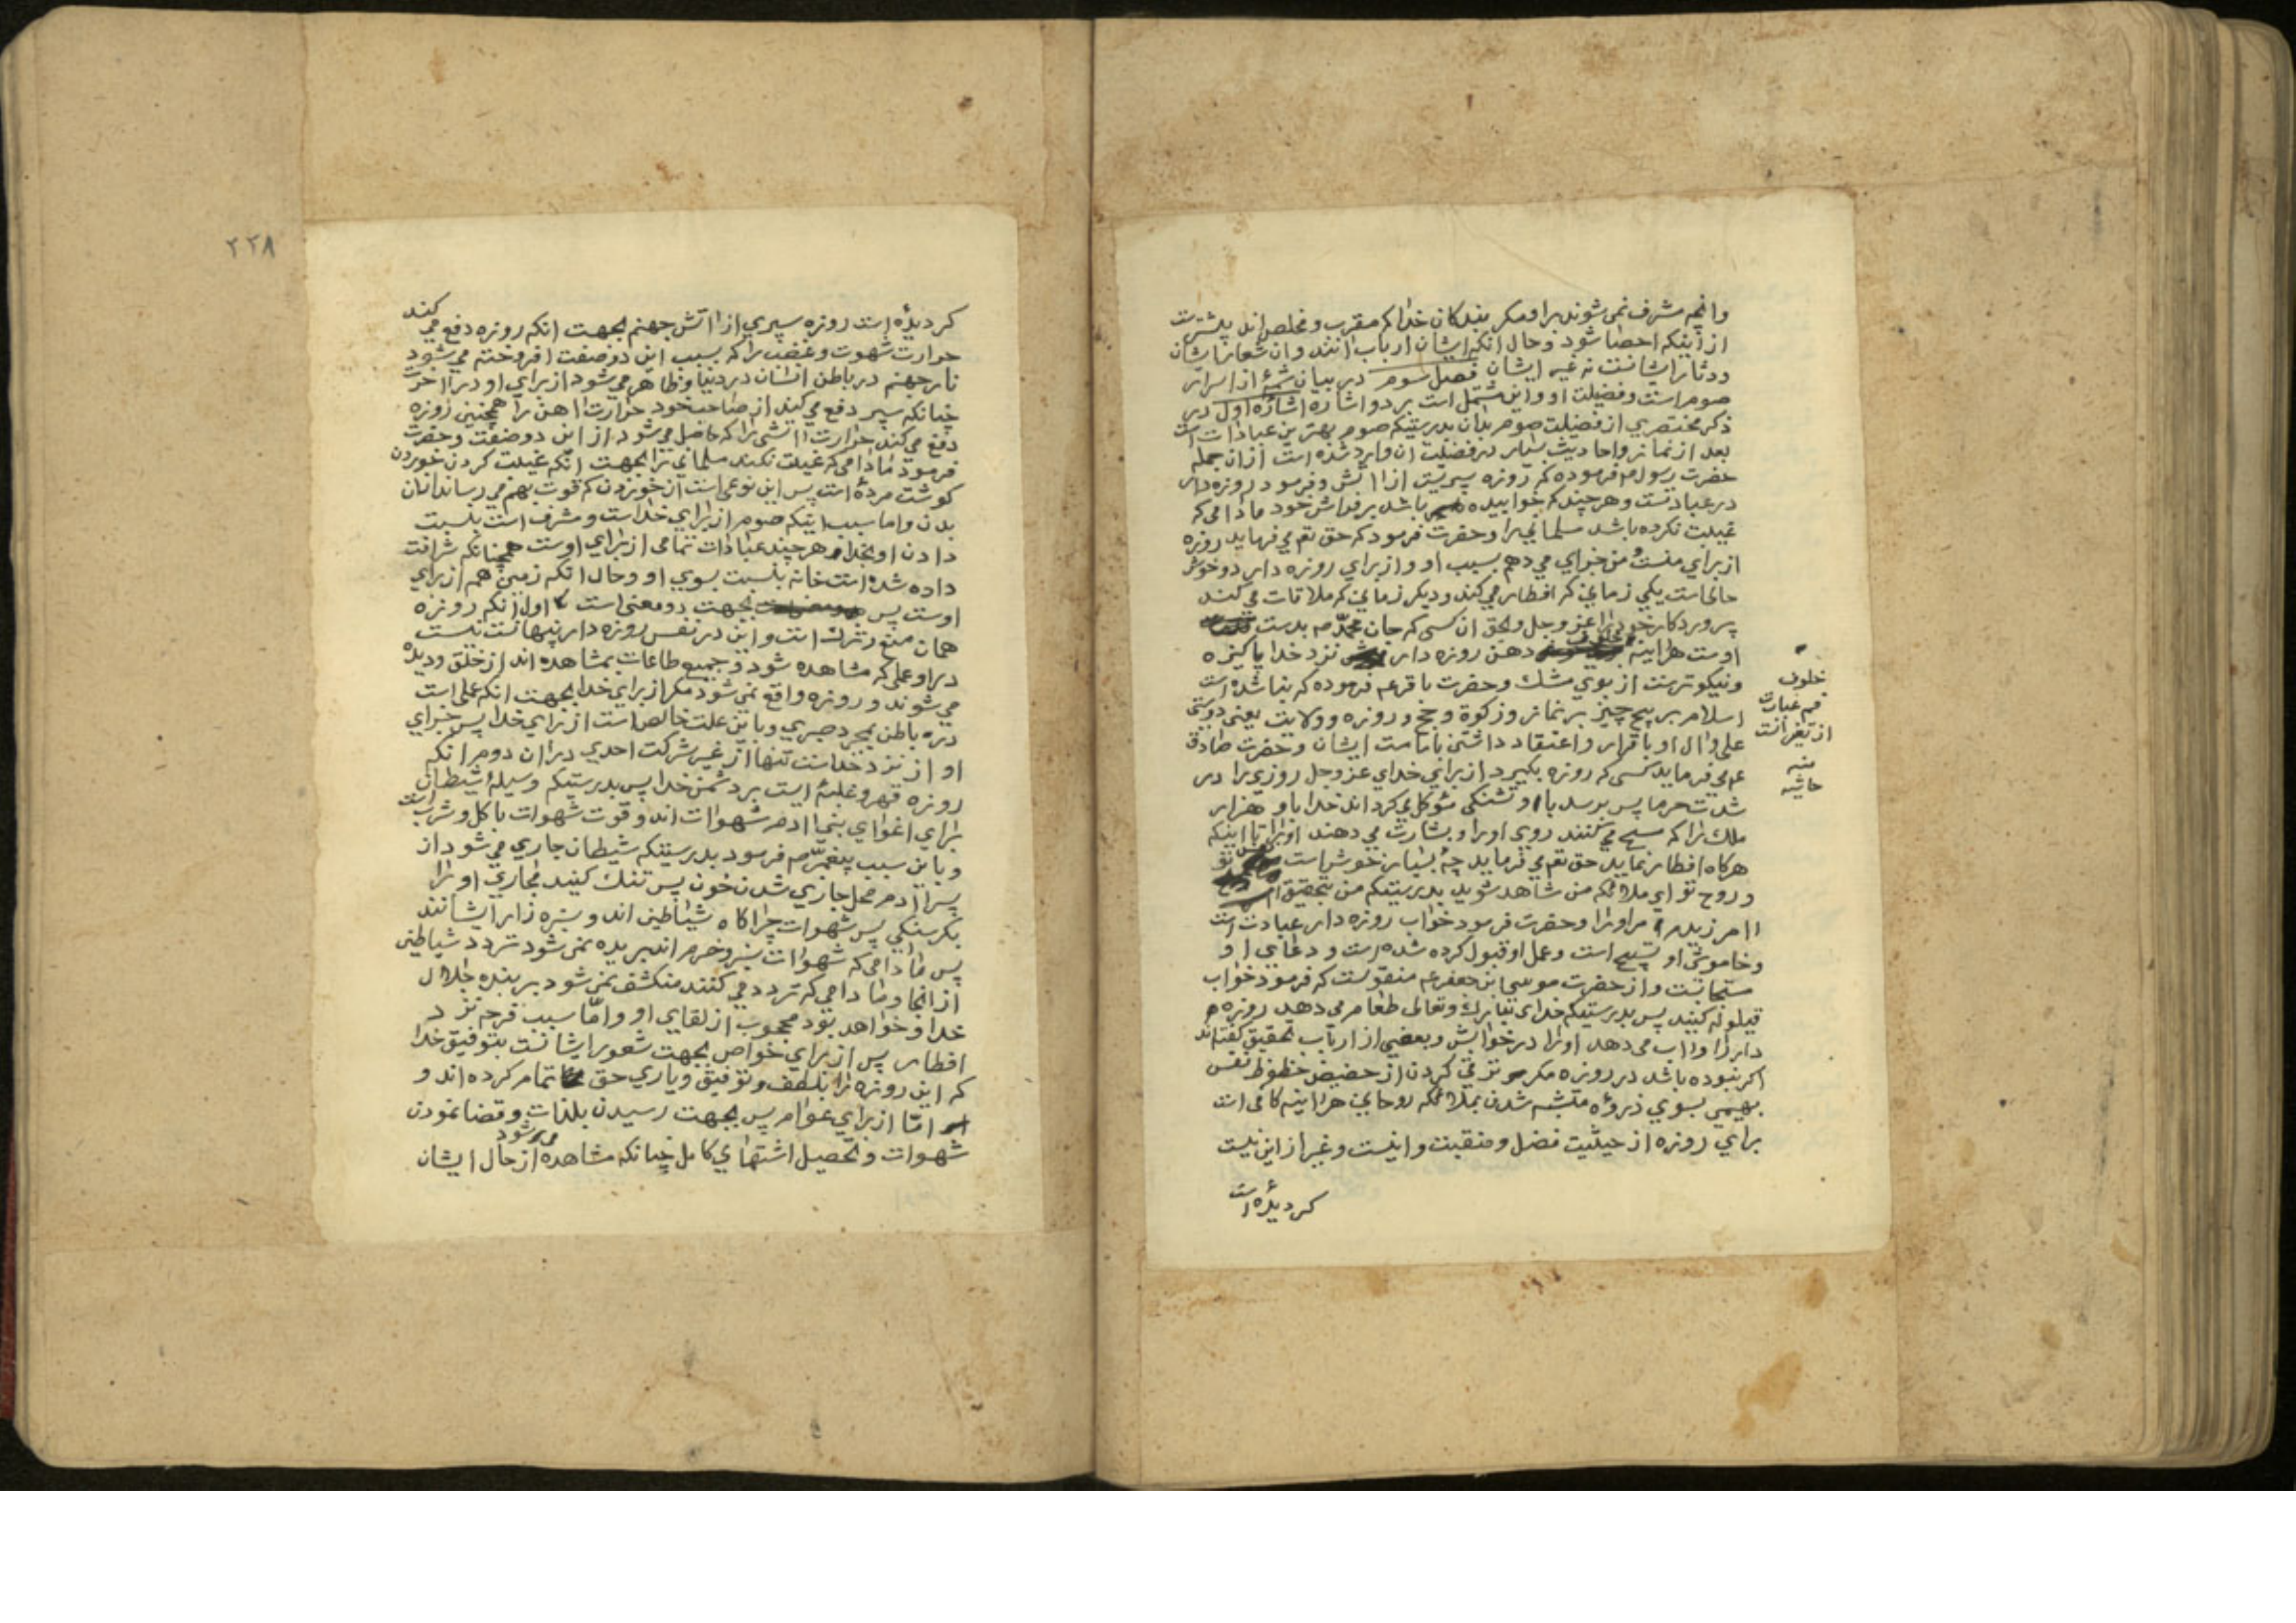 وانچه مشرف نمی شوند براو مکر بندکان خدا که مقرب و مخلص اند بیشترست
از اینکه احصا شود و حال انکه ایشان ارباب انند و ان شعار ایشان
ودثار ایشانست نه غیر ایشان فصل سوم در بیان شمهٔ از اسرار
صوم است و فضیلت او و این مشتمل است بر دو اشاره اشارهٔ اول در
ذکر مختصری از فضیلت صوم بدان بدرستیکه صوم بهترین عبادات است
بعد از نماز و احادیث بسیار در فضیلت ان وارد شده است ازان جمله
حضرت رسول ص فرموده که روزه سپریست از ااتش و فرمود روزه دار
در عبادتست و هرچند که خوابیده باشد بر فراش خود مادامی که
غیبت نکرده باشد مسلمانی را و حضرت فرمود که حق تع می فرماید روزه
از برای منست و من جزای می دهم بسبب او و از برای روزه دار دو خوش
حالی است یکی زمانی که افطار می کند و دیکر زمانی که ملاقات می کند
پروردکار خود را عزوجل و بحق ان کسی که جان محمد ص بدست
اوست هراینه خلوف دهن روزه دار نزد خدا پاکیزه
ونیکوترست از بوی مشك و حضرت باقر عم فرموده که بنا شده است
اسلام بر پنج چیز بر نماز و زکوة و حج و روزه و ولایت یعنی دوستی
علی و ال او با قرار و اعتقاد داشتن بامامت ایشان و حضرت صادق
عم می فرماید کسی که روزه بکیرد از برای خدای عزوجل روزی را در
شدت حرما پس برسد با او تشنکی موکل می کرداند خدا باو هزار
ملك را که مسح می کنند روی او را و بشارت می دهند او را تا اینکه
هرکاه افطار نماید حق تع می فرماید چه بسیار خوش است تو
و روح تو ای ملائکه من شاهد شوید بدرستیکه من بتحقیق
اامرزیدم مر او را و حضرت فرمود خواب روزه دار عبادت است
وخاموشی او تسبیح است و عمل او قبول کرده شده است و دعای او
مستجابست و از حضرت موسی ابن جعفر عم منقولست که فرمود خواب
قیلوله کنید پس بدرستیکه خدای تبارك وتعالی طعام می دهد روزه
دار را و ااب می دهد او را در خوابش و بعضی از ارباب تحقیق کفته اند
اکر نبوده باشد در روزه مکر ترقی کردن از حضیض حظوظ نفس
بهیمی بسوی ذروهٔ متشبه شدن بملائکه روحانی هراینه کافی است
برای روزه از حیثیت فضل و منقبت و اینست و غیر از این نیست
کردیده است
خلوف
فم عبارت
از تغیر انست
منه
حاشیه
۲۲۸
کردیده است روزه سپری از ااتش جهنم بجهت انکه روزه دفع می کند
حرارت شهوت و غضب را که بسبب این دو صفت افروخته می شود
نار جهنم در باطن انسان در دنیا و ظاهر می شود از برای او در ااخرت
چنانکه سپر دفع می کند از صاحب خود حرارت ااهن را همچنین روزه
دفع می کند حرارت ااتشی را که حاصل می شود از این دو صفت و حضرت
فرمود مادامی که غیبت نکند مسلمانی را بجهت انکه غیبت کردن خوردن
کوشت مرده است پس این نوعی است از خوردن که قوت بهم می رساند انان
بدن و اما سبب اینکه صوم از برای خداست و مشرف است بنسبت
دادن او بخدا هرچند عبادات تمامی از برای اوست همچنانکه شرافت
داده شده است خانه بنسبت بسوی او و حال انکه زمین هم از برای
اوست پس بجهت دو معنی است اول انکه روزه
همان منع و ترك است و این در نفس روزه دار پنهانست نیست
در او عملی که مشاهده شود و جمیع طاعات بمشاهده اند از خلق و دیده
می شوند و روزه واقع نمی شود مکر از برای خدا بجهت انکه عملی است
در باطن بمجرد صبری و باین علت خالص است از برای خدا پس جزای
او از نزد خداست تنها از غیر شرکت احدی در ان دوم انکه
روزه قهر و غلبهٔ است بر دشمن خدا پس بدرستیکه وسیلهٔ شیطان
برای اغوای بنی اادم شهوات اند و قوت شهوات باکل و شرب است
و باین سبب پیغمبر ص فرمود بدرستیکه شیطان جاری می شود از
پسر اادم محل جاری شدن خون پس تنك کنید مجاری او را
بکرسنکی پس شهوات چراکاه شیاطین اند و سبزه زار ایشانند
پس مادامی که شهوات سبز و خرم اند بریده نمی شود تردد شیاطین
از انجا و مادامی که تردد می کنند منکشف نمی شود بر بنده جلال
خدا و خواهد بود محجوب از لقای او و اما سبب فرح نزد
افطار پس از برای خواص بجهت شعور ایشانست بتوفیق خدا
که این روزه را بلطف و توفیق و یاری حق تمام کرده اند و
اما از برای عوام پس بجهت رسیدن بلذات و قضا نمودن
شهوات و تحصیل اشتهای کامل چنانکه مشاهده می شود از حال ایشان